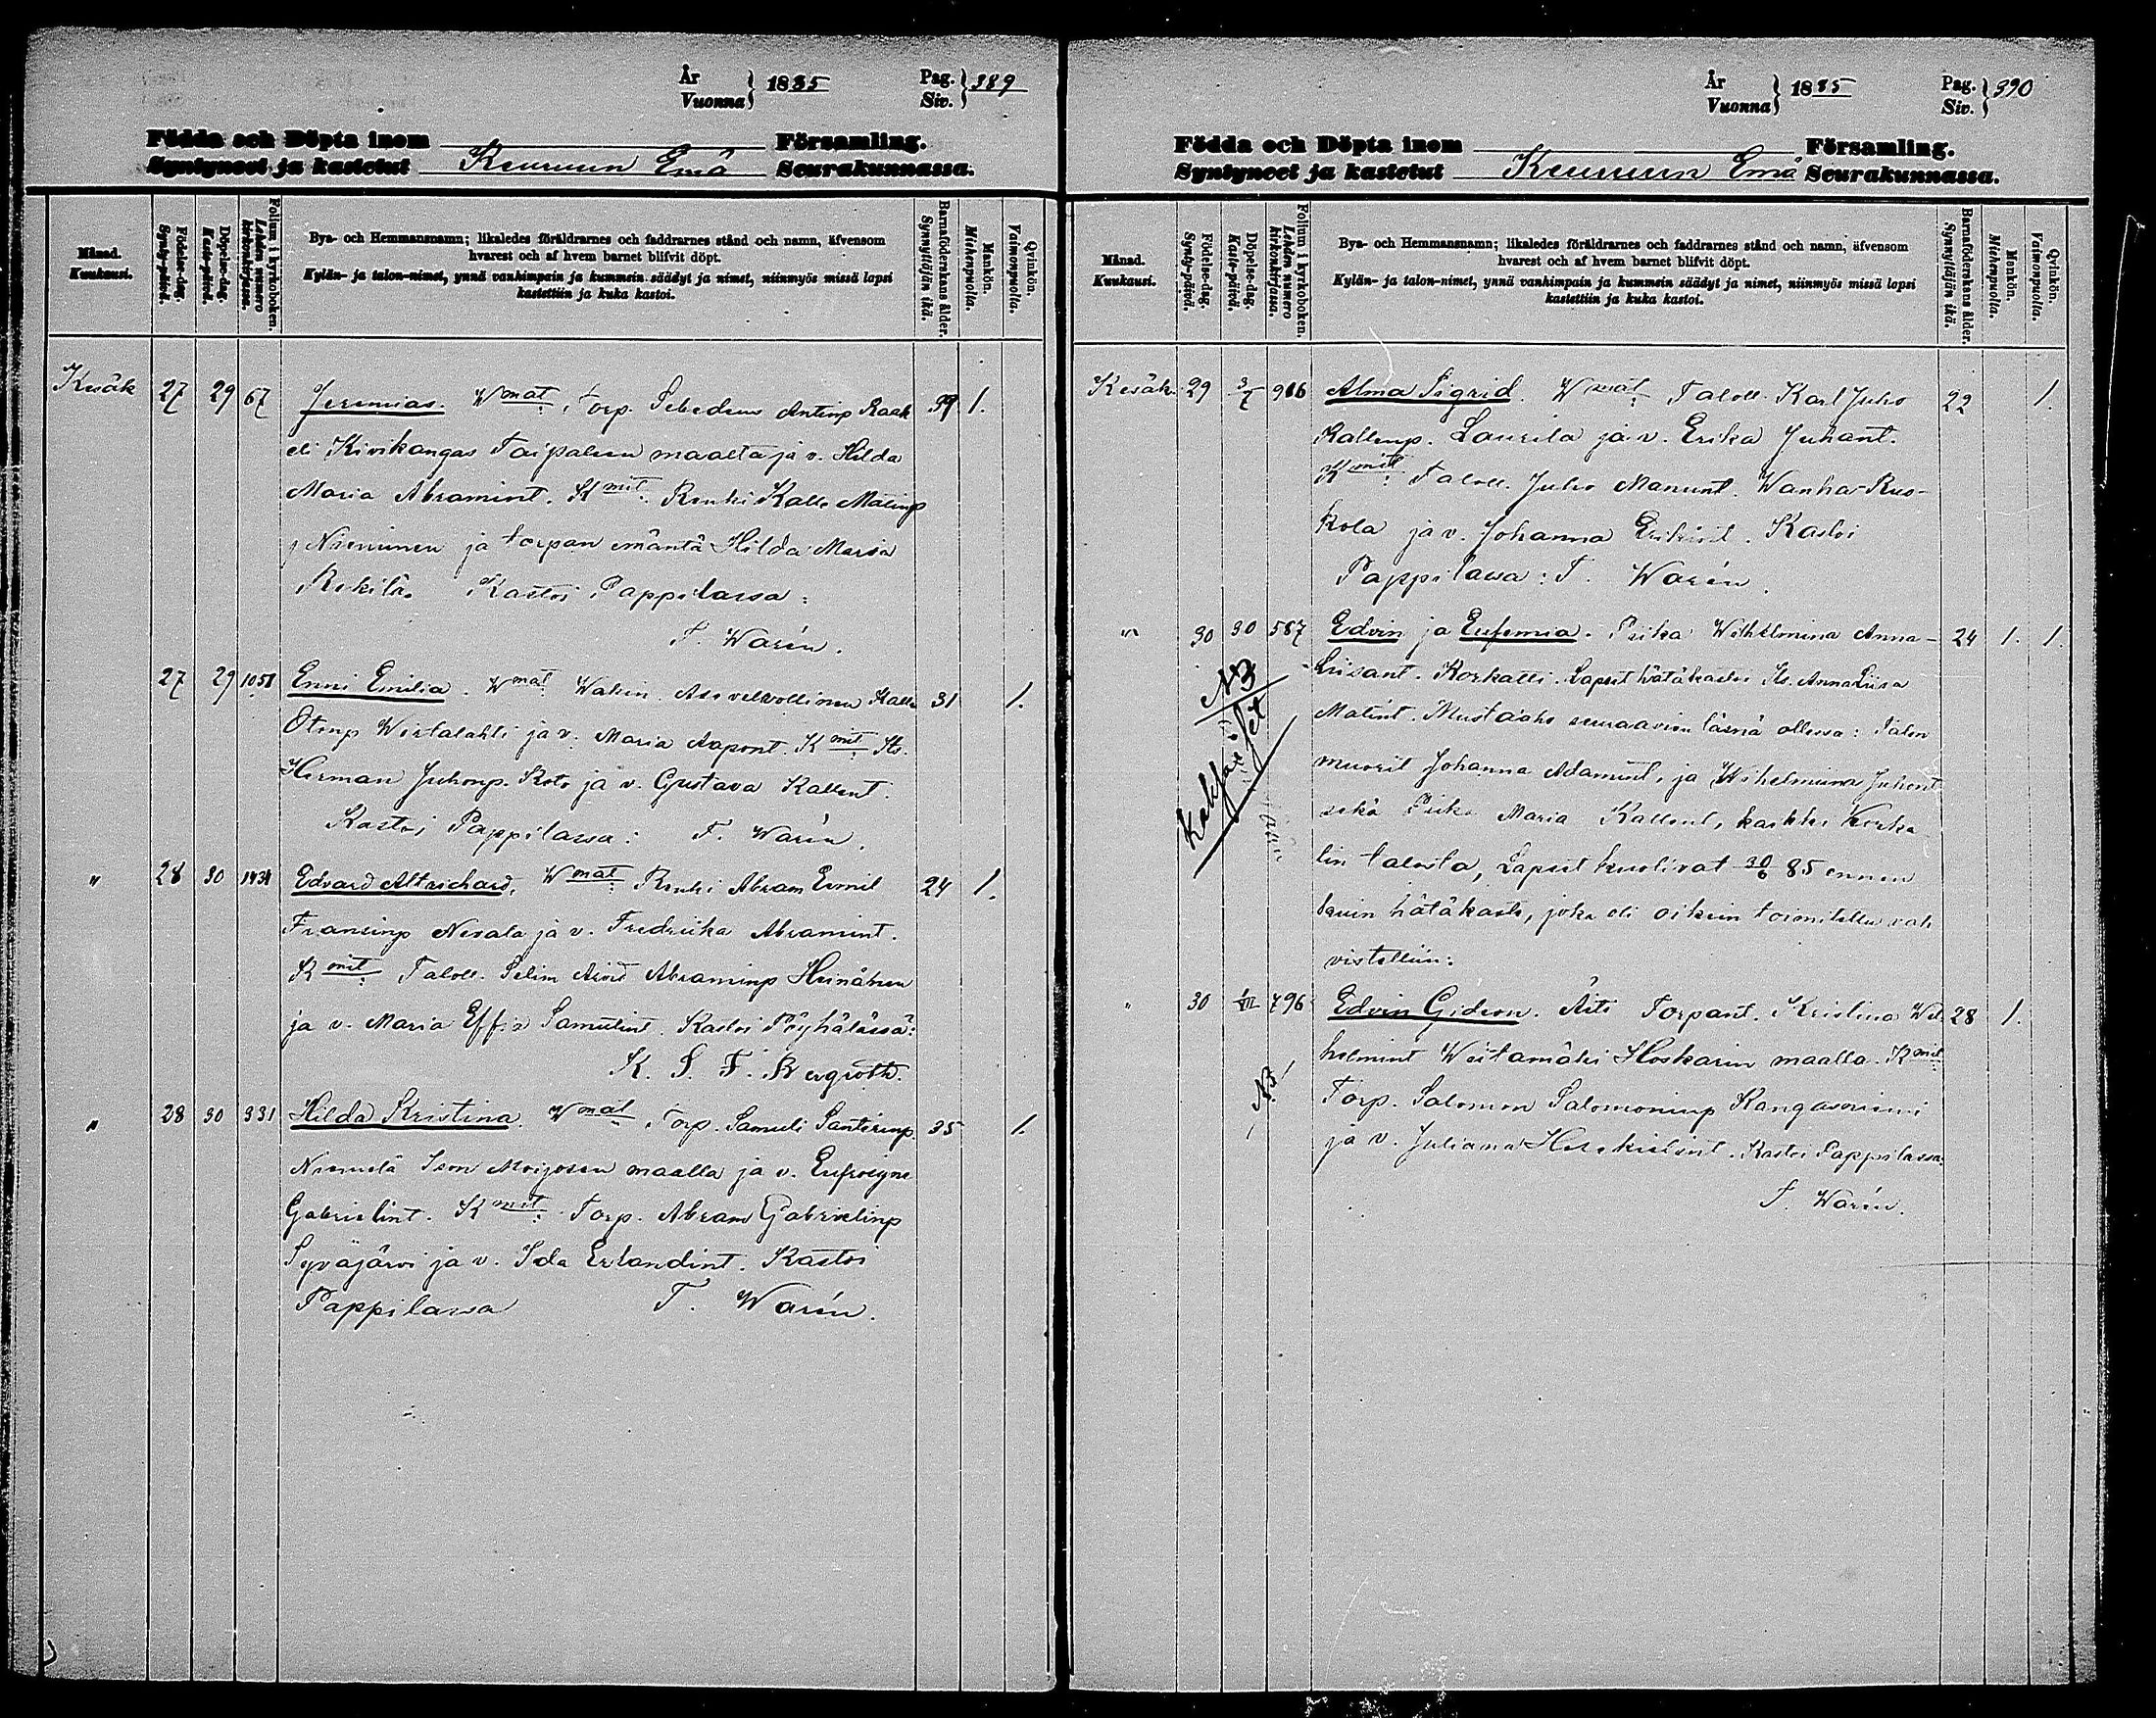 År
Vuonna } 1885
Pag.
Siv. } 389
Födda och Döpta inom Församling.
Syntyneet ja kastetut Keuruun Emä Seurakunnassa.
Månad.
Kuukausi.
Födelse-dag.
Synty-päivä.
Döpelse-dag.
Kaste-päivä.
Folium i kyrkoboken.
Lehden numero
kirkonkirjassa.
Bya- och Hemmansnamn; likaledes föräldrarnes och faddrarnes stånd och namn, äfvensom
hvarest och af hvem barnet blifvit döpt.
Kylän- ja talon-nimet, ynnä vanhimpain ja kummein säädyt ja nimet, niinmyös missä lapsi
kastettiin ja kuka kastoi.
Barnaföderskans ålder.
Synnyttäjän ikä.
Mankön.
Miehenpuolia.
Qvinkön.
Vaimonpuolia.
Kesäk 27 29 67 Jeremias. Wmat: Torp. Sebedeus Antinp Raak 39 1.
eli Kivikangas Taipaleen maalta ja v. Hilda
Maria Abramint. Kmit: Renki Kalle Matinp
Nieminen ja torpan emäntä Hilda Maria
Rekilä. Kastoi Pappilassa:
T. Warén.
27 29 1051 Enni Emilia. Wmat: Wakin. Asevelvollinen Kalle 31 1.
Otonp Wirtalahti ja v. Maria Aapont. Kmit: Its.
Herman Juhonp. Koto ja v. Gustava Kallent.
Kastoi Pappilassa: T. Warén.
" 28 30 1434 Edvard Altrichard. Wmat: Renki Abram Evmil 24 1.
Fransinp Nevala ja v. Fredriika Abramint.
Kmit: Taloll. Selim Arvid Abraminp Heinänen
ja v. Maria Effia Samulint. Kastoi Pöyhölässä:
K. S. F. Bergroth.
" 28 30 331 Hilda Kristina. Wmat: Torp. Samuli Santerinp. 35 1.
Niemelä Ison maalla ja v. Eufrosyne
Gabrielint. Kmit: Torp. Abram Gabrielinp
Syväjärvi ja v. Ida Erlandint. Kastoi
Pappilassa T. Warén.
År
Vuonna } 1885
Pag.
Siv. } 390
Födda och Döpta inom Församling.
Syntyneet ja kastetut Keuruun Emä Seurakunnassa.
Månad.
Kuukausi.
Födelse-dag.
Synty-päivä.
Döpelse-dag.
Kaste-päivä.
Folium i kyrkoboken.
Lehden numero
kirkonkirjassa.
Bya- och Hemmansnamn; likaledes föräldrarnes och faddrarnes stånd och namn, äfvensom
hvarest och af hvem barnet blifvit döpt.
Kylän- ja talon-nimet, ynnä vanhimpain ja kummein säädyt ja nimet, niinmyös missä lapsi
kastettiin ja kuka kastoi.
Barnaföderskans ålder.
Synnyttäjän ikä.
Mankön.
Miehenpuolia.
Qvinkön.
Vaimonpuolia.
Kesäk. 29 3/7 966 Alma Sigrid. Wmat: Taloll. Karl Juho 22 1.
Kallenp. Laurila ja v. Erika Juhant.
Kmit: Taloll. Juho Manunt. Wanha-Ruo-
kola ja v. Johanna Erikint. Kastoi
Pappilassa: T. Warén.
" 30 30 587 Edvin ja Eufemia. Piika Wilhelmina Anna- 24 1. 1.
Liisant. Korkatti. Lapset hätäkastoi Its. Anna Liisa
Matint. Mustaaho seuraavien läsnä ollessa: Talon
muorit Johanna Adamint. ja Wilhelmiina Juhont
sekä Piika Maria Kallent, kaikki Korka
tin talosta, Lapset kuolivat 30/6 85 ennen
kuin hätäkaste, joka oli oikein toimitettu vah
vistettiin:
NB
Kaksoiset
" 30 1/VII 796 Edvin Gideon. Äiti Torpant. Kristiina Wil 28 1.
helmint Westamäki Hoskarin maalla. Kmit:
Torp. Salomon Salomoninp Kangasniemi
ja v. Juliana Heskielint. Kastoi Pappilassa:
T. Warén.
NB!